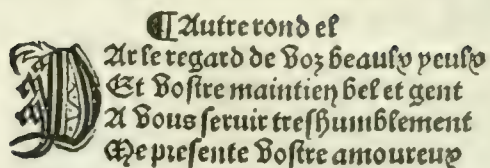 ¶ Autre rondel
PAr le regard de voz beaulx yeulx
Et vostre maintien bel et gent
A vous seruir treshumblement
Me presente vostre amoureux